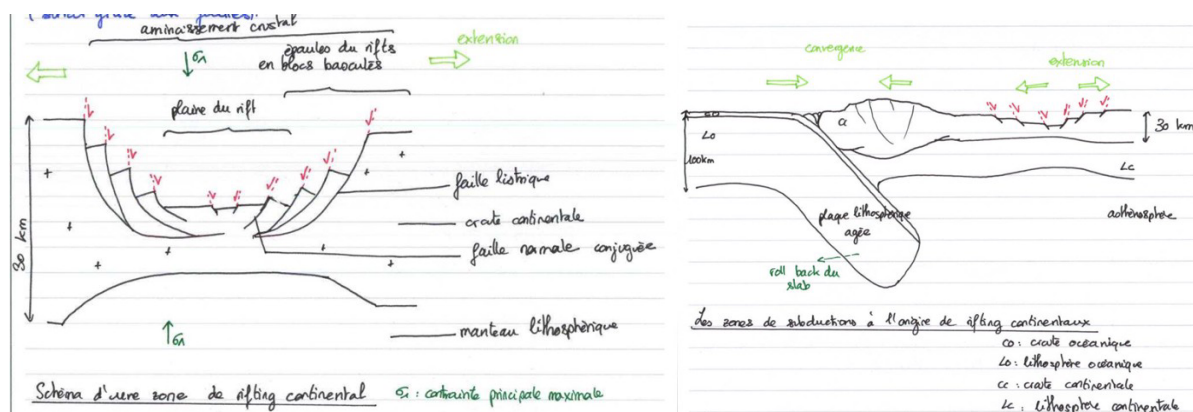 amincissement crustal
σ1
épaules du rifts
en blocs basculés
extension
plaine du rift
faille listrique
croûte continentale
faille normale conjuguée
30 km
σ1
manteau lithosphérique
Schéma d'une zone de rifting continental
σ1 : contrainte principale maximale
convergence
extension
CO
LO
100km
CC
30 km
LC
plaque lithosphérique
agée
asthénosphère
roll back du
slab
Les zones de subductions à l'origine de rifting continentaux
CO : croûte océanique
LO : lithosphère océanique
CC : croûte continentale
LC : lithosphère continentale